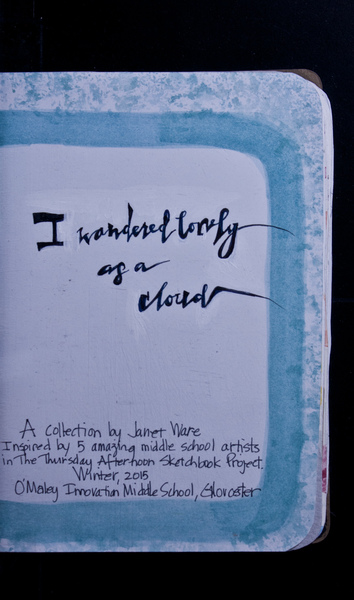 I wandered lonely
as a
cloud
A collection by Janet Ware
Inspired by 5 amazing middle school artists
in The Thursday Afternoon Sketchbook Project.
Winter, 2015
O'Maley Innovation Middle School, Gloucester